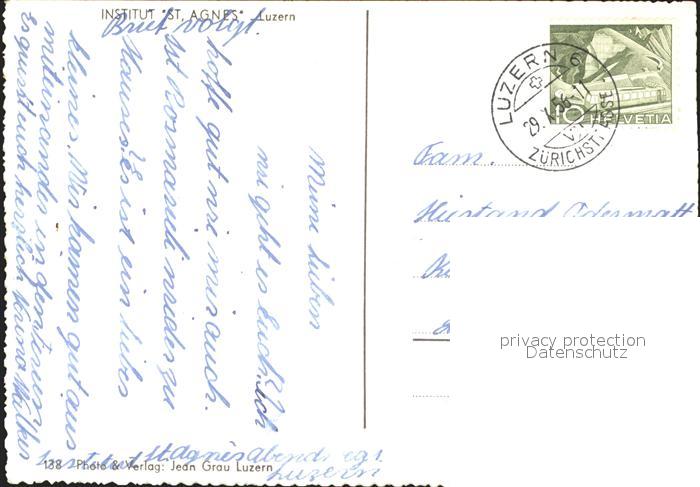 INSTITUT "ST. AGNES" Luzern
Brief folgt.
Meine Lieben
wie geht es Euch? ich
hoffe gut wie mir auch.
Ist Rosmarie wieder zu
Hause? Es ist ein liebes
kleines. Wir kamen gut aus
miteinander in den Ferien
Es grüsst euch herzlich
Institut St. Agnes
Luzern
138 Photo & Verlag: Jean Grau Luzern
LUZERN 6
29.X.56-11
ZÜRICHSTRASSE
10
HELVETIA
Fam.
Hiestand Odermatt
privacy protection
Datenschutz